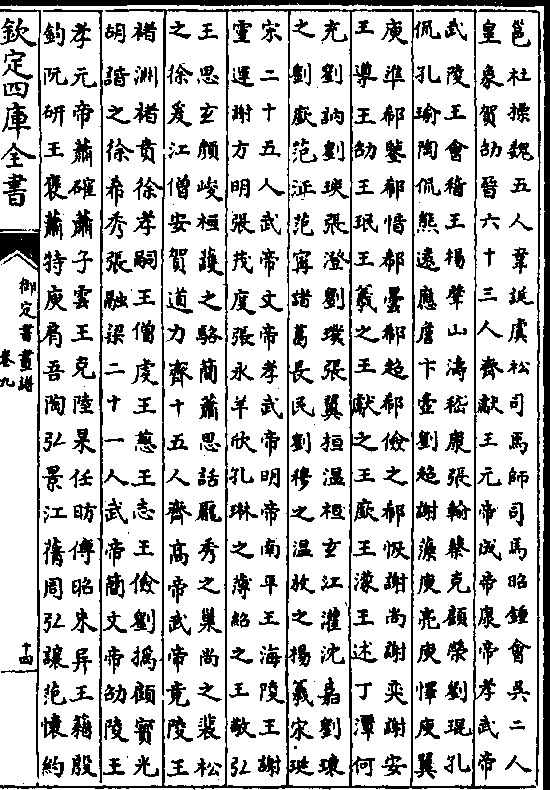 邕杜操魏五人韋誕虞松司馬師司馬昭鍾會吳二人
皇象賀劭晉六十三人齊獻王元帝成帝康帝孝武帝
武陵王會稽王楊肇山濤嵇康張翰蔡克顧榮劉琨孔
侃孔瑜陶侃熊遠應詹卞壼劉超謝藻庾亮庾懌庾翼
庾準郗鑒郗愔郗曇郗超郗儉之郗恢謝尚謝奕謝安
王導王劭王珉王羲之王獻之王廞王濛王述丁潭何
充劉訥劉琰張澄劉璞張翼桓溫桓玄江灌沈嘉劉瓌
之劉廞范汪范甯諸葛長民劉穆之溫放之楊羲宋珽
宋二十五人武帝文帝孝武帝明帝南平王海陵王謝
靈運謝方明張茂度張永羊欣孔琳之薄紹之王敬弘
王思玄顏峻桓護之駱簡蕭思話龐秀之巢尚之裴松
之徐爰江僧安賀道力齊十五人齊高帝武帝竟陵王
褚淵褚賁徐孝嗣王僧虔王慈王志王儉劉撝顧寶光
胡諧之徐希秀張融梁二十一人武帝簡文帝邵陵王
孝元帝蕭確蕭子雲王克陸杲任昉傅昭朱异王籍殷
鈞阮研王褒蕭特庾肩吾陶弘景江蒨周弘讓范懷約
欽定四庫全書
御定書畫譜
卷九
十四